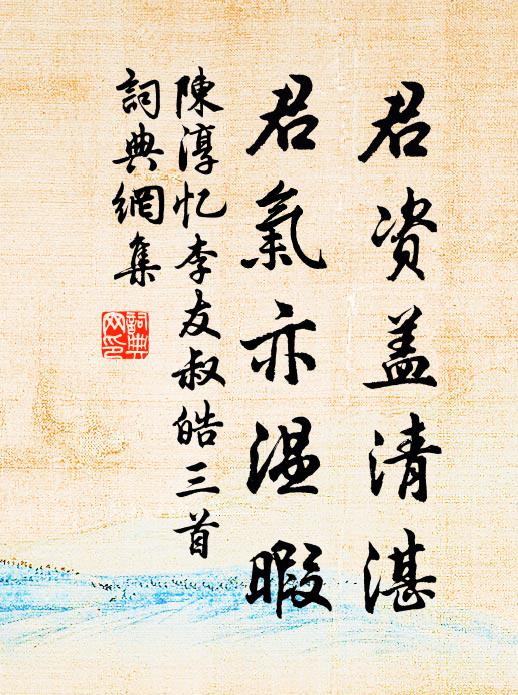 君资盖清湛
君氣亦温暇
陳淳忆李友叔皓三首
詞典網集
詞典網印